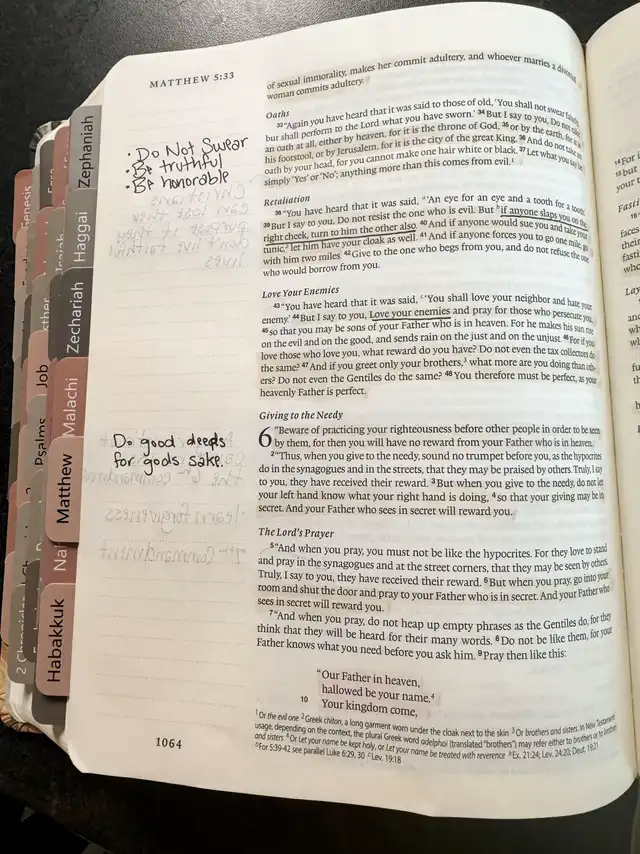 MATTHEW 5:33
• Do Not Swear
• Be truthful
• Be honorable
Do good deeds
for gods sake.
1064
of sexual immorality, makes her commit adultery, and whoever marries a divorced
woman commits adultery.
Oaths
33 "Again you have heard that it was said to those of old, 'You shall not swear falsely,
but shall perform to the Lord what you have sworn.' 34 But I say to you, Do not take
an oath at all, either by heaven, for it is the throne of God, 35 or by the earth, for it is
his footstool, or by Jerusalem, for it is the city of the great King. 36 And do not take an
oath by your head, for you cannot make one hair white or black. 37 Let what you say be
simply 'Yes' or 'No'; anything more than this comes from evil.1
Retaliation
38 "You have heard that it was said, c'An eye for an eye and a tooth for a tooth.'
39 But I say to you, Do not resist the one who is evil. But b if anyone slaps you on the
right cheek, turn to him the other also. 40 And if anyone would sue you and take your
tunic,2 let him have your cloak as well. 41 And if anyone forces you to go one mile, go
with him two miles. 42 Give to the one who begs from you, and do not refuse the one
who would borrow from you.
Love Your Enemies
43 "You have heard that it was said, c'You shall love your neighbor and hate your
enemy.' 44 But I say to you, Love your enemies and pray for those who persecute you,
45 so that you may be sons of your Father who is in heaven. For he makes his sun rise
on the evil and on the good, and sends rain on the just and on the unjust. 46 For if you
love those who love you, what reward do you have? Do not even the tax collectors do
the same? 47 And if you greet only your brothers,3 what more are you doing than oth-
ers? Do not even the Gentiles do the same? 48 You therefore must be perfect, as your
heavenly Father is perfect.
Giving to the Needy
6 "Beware of practicing your righteousness before other people in order to be seen
by them, for then you will have no reward from your Father who is in heaven.
2 "Thus, when you give to the needy, sound no trumpet before you, as the hypocrites
do in the synagogues and in the streets, that they may be praised by others. Truly, I say
to you, they have received their reward. 3 But when you give to the needy, do not let
your left hand know what your right hand is doing, 4 so that your giving may be in
secret. And your Father who sees in secret will reward you.
The Lord's Prayer
5 "And when you pray, you must not be like the hypocrites. For they love to stand
and pray in the synagogues and at the street corners, that they may be seen by others.
Truly, I say to you, they have received their reward. 6 But when you pray, go into your
room and shut the door and pray to your Father who is in secret. And your Father who
sees in secret will reward you.
7 "And when you pray, do not heap up empty phrases as the Gentiles do, for they
think that they will be heard for their many words. 8 Do not be like them, for your
Father knows what you need before you ask him. 9 Pray then like this:
"Our Father in heaven,
hallowed be your name.4
10 Your kingdom come,
1 Or the evil one 2 Greek chiton, a long garment worn under the cloak next to the skin 3 Or brothers and sisters. In New Testament
usage, depending on the context, the plural Greek word adelphoi (translated "brothers") may refer either to brothers or to brothers
and sisters 4 Or Let your name be kept holy, or Let your name be treated with reverence a Ex. 21:24; Lev. 24:20; Deut. 19:21
b For 5:39-42 see parallel Luke 6:29, 30 c Lev. 19:18
Genesis
Zephaniah
Haggai
Isaiah
Zechariah
Job
Malachi
Psalms
Matthew
Habakkuk
2 Chronicles